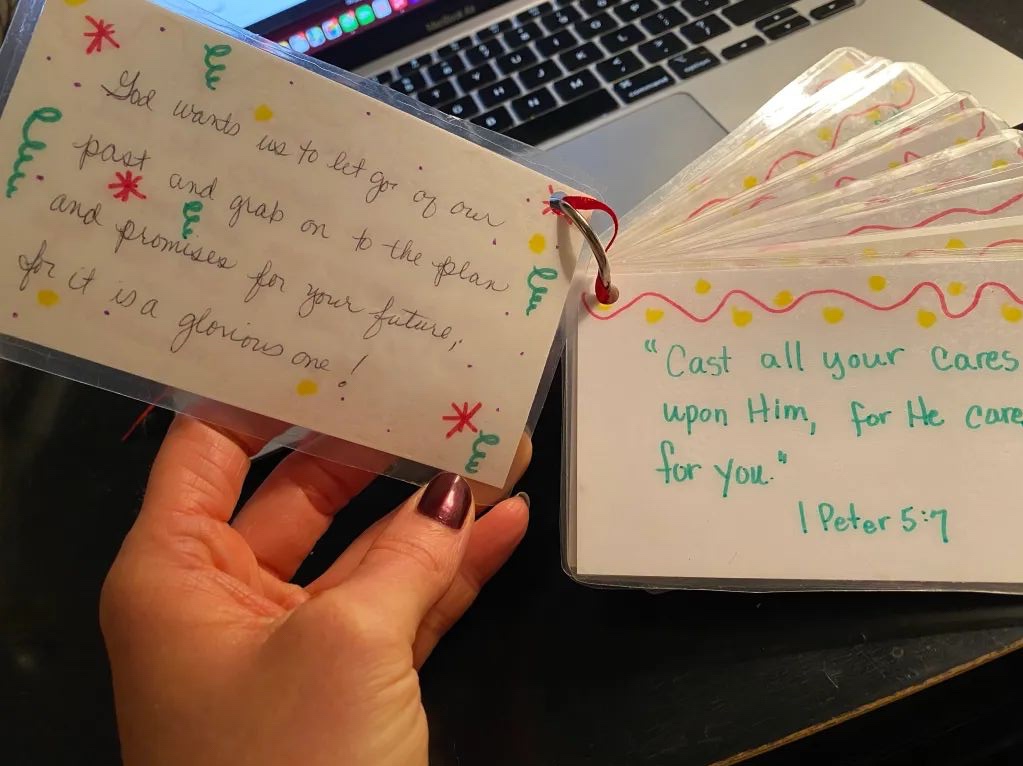 God wants us to let go of our
past and grab on to the plan
and promises for your future,
for it is a glorious one!
"Cast all your cares
upon Him, for He care
for you."
1 Peter 5:7
MacBook Air
command